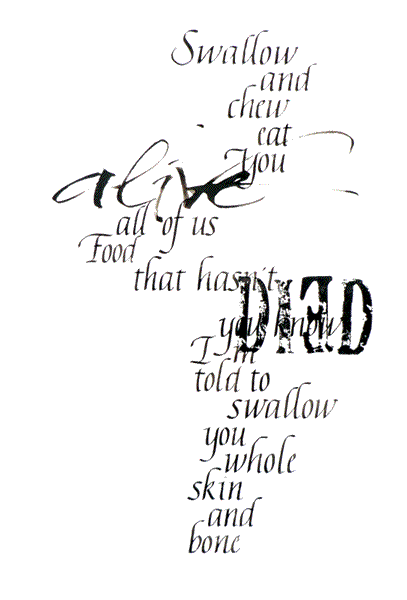 Swallow
and
chew
eat
You
alive
all of us
Food
that hasn't
DIED
you know
I'm
told to
swallow
you
whole
skin
and
bone